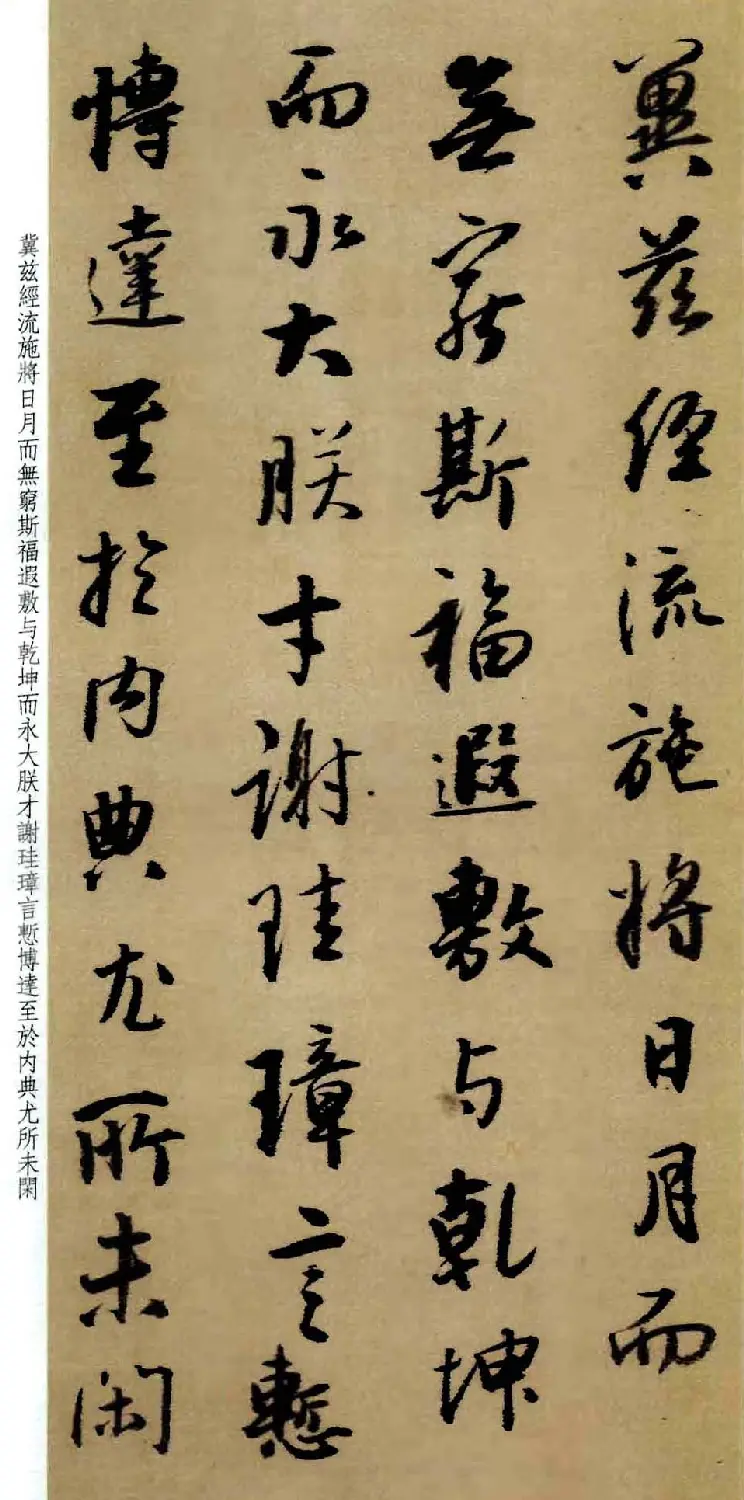 冀茲經流施將日月而
無窮斯福遐敷与乾坤
而永大朕才謝珪璋言慙
博達至於内典尤所未閑
冀兹經流施將日月而無窮斯福遐敷与乾坤而永大朕才謝珪璋言慙博達至於内典尤所未閑